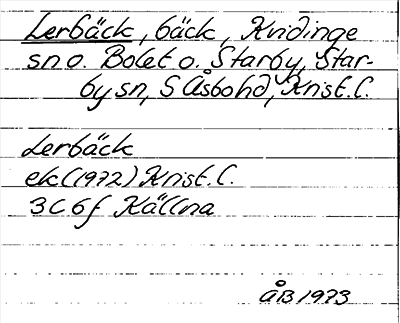 Lerbäck, bäck, Kvidinge
sn o. Bolet o. Starby, Star-
by sn, S Åsbohd, Krist. L.
Lerbäck
ek (1972) Krist. L.
3C 6f Källna
ÅB 1973